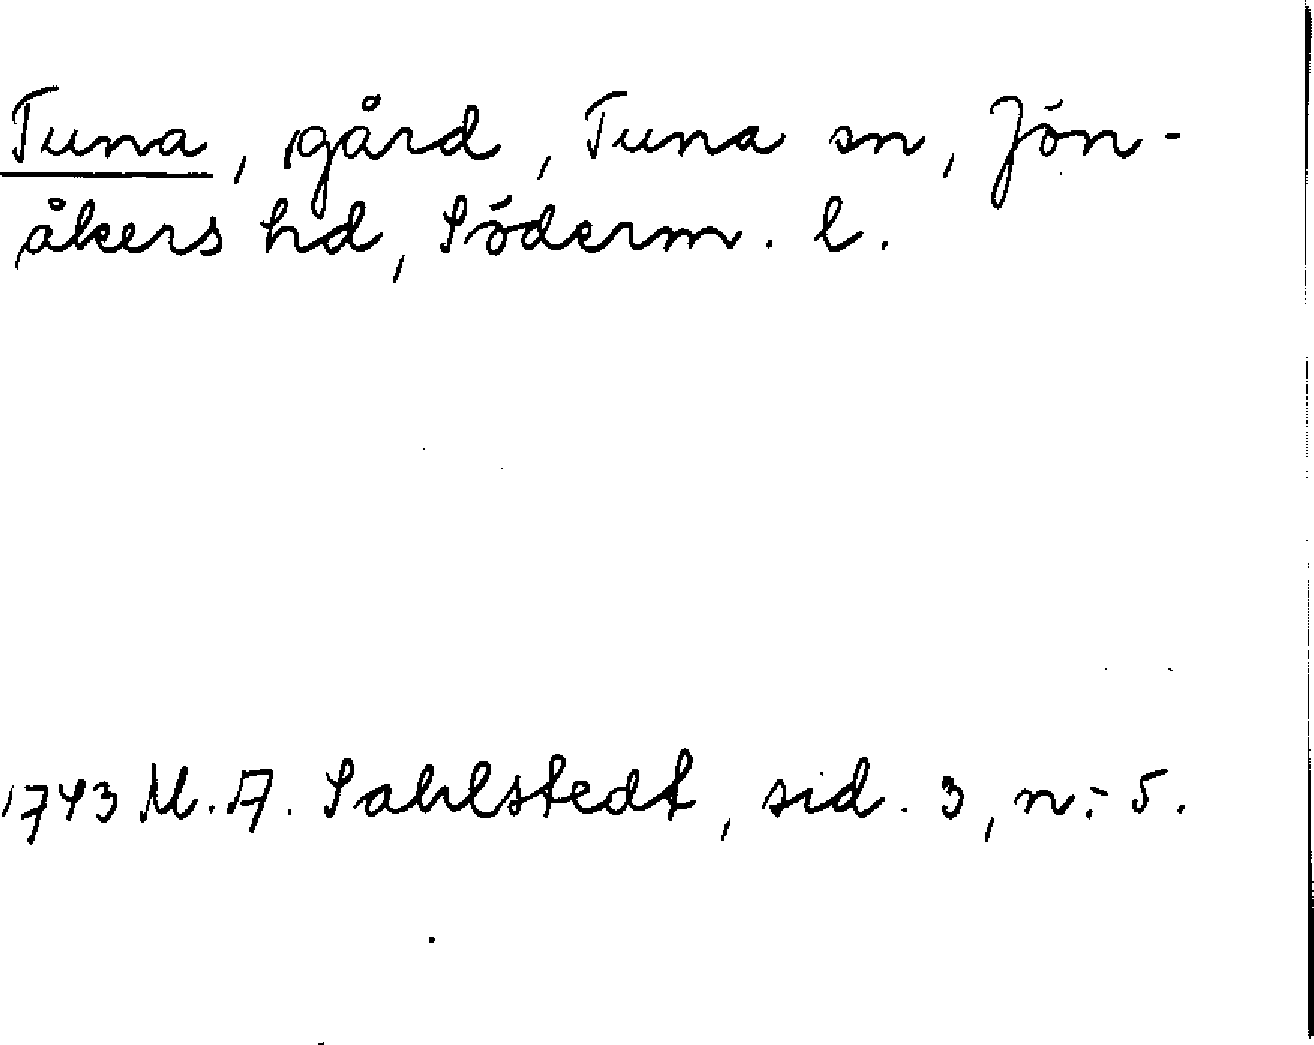 Tuna, gård, Tuna sn, Jön-
åkers hd, Söderm. l.
1743 M. A. Sahlstedt, sid. 3, n:r 5.